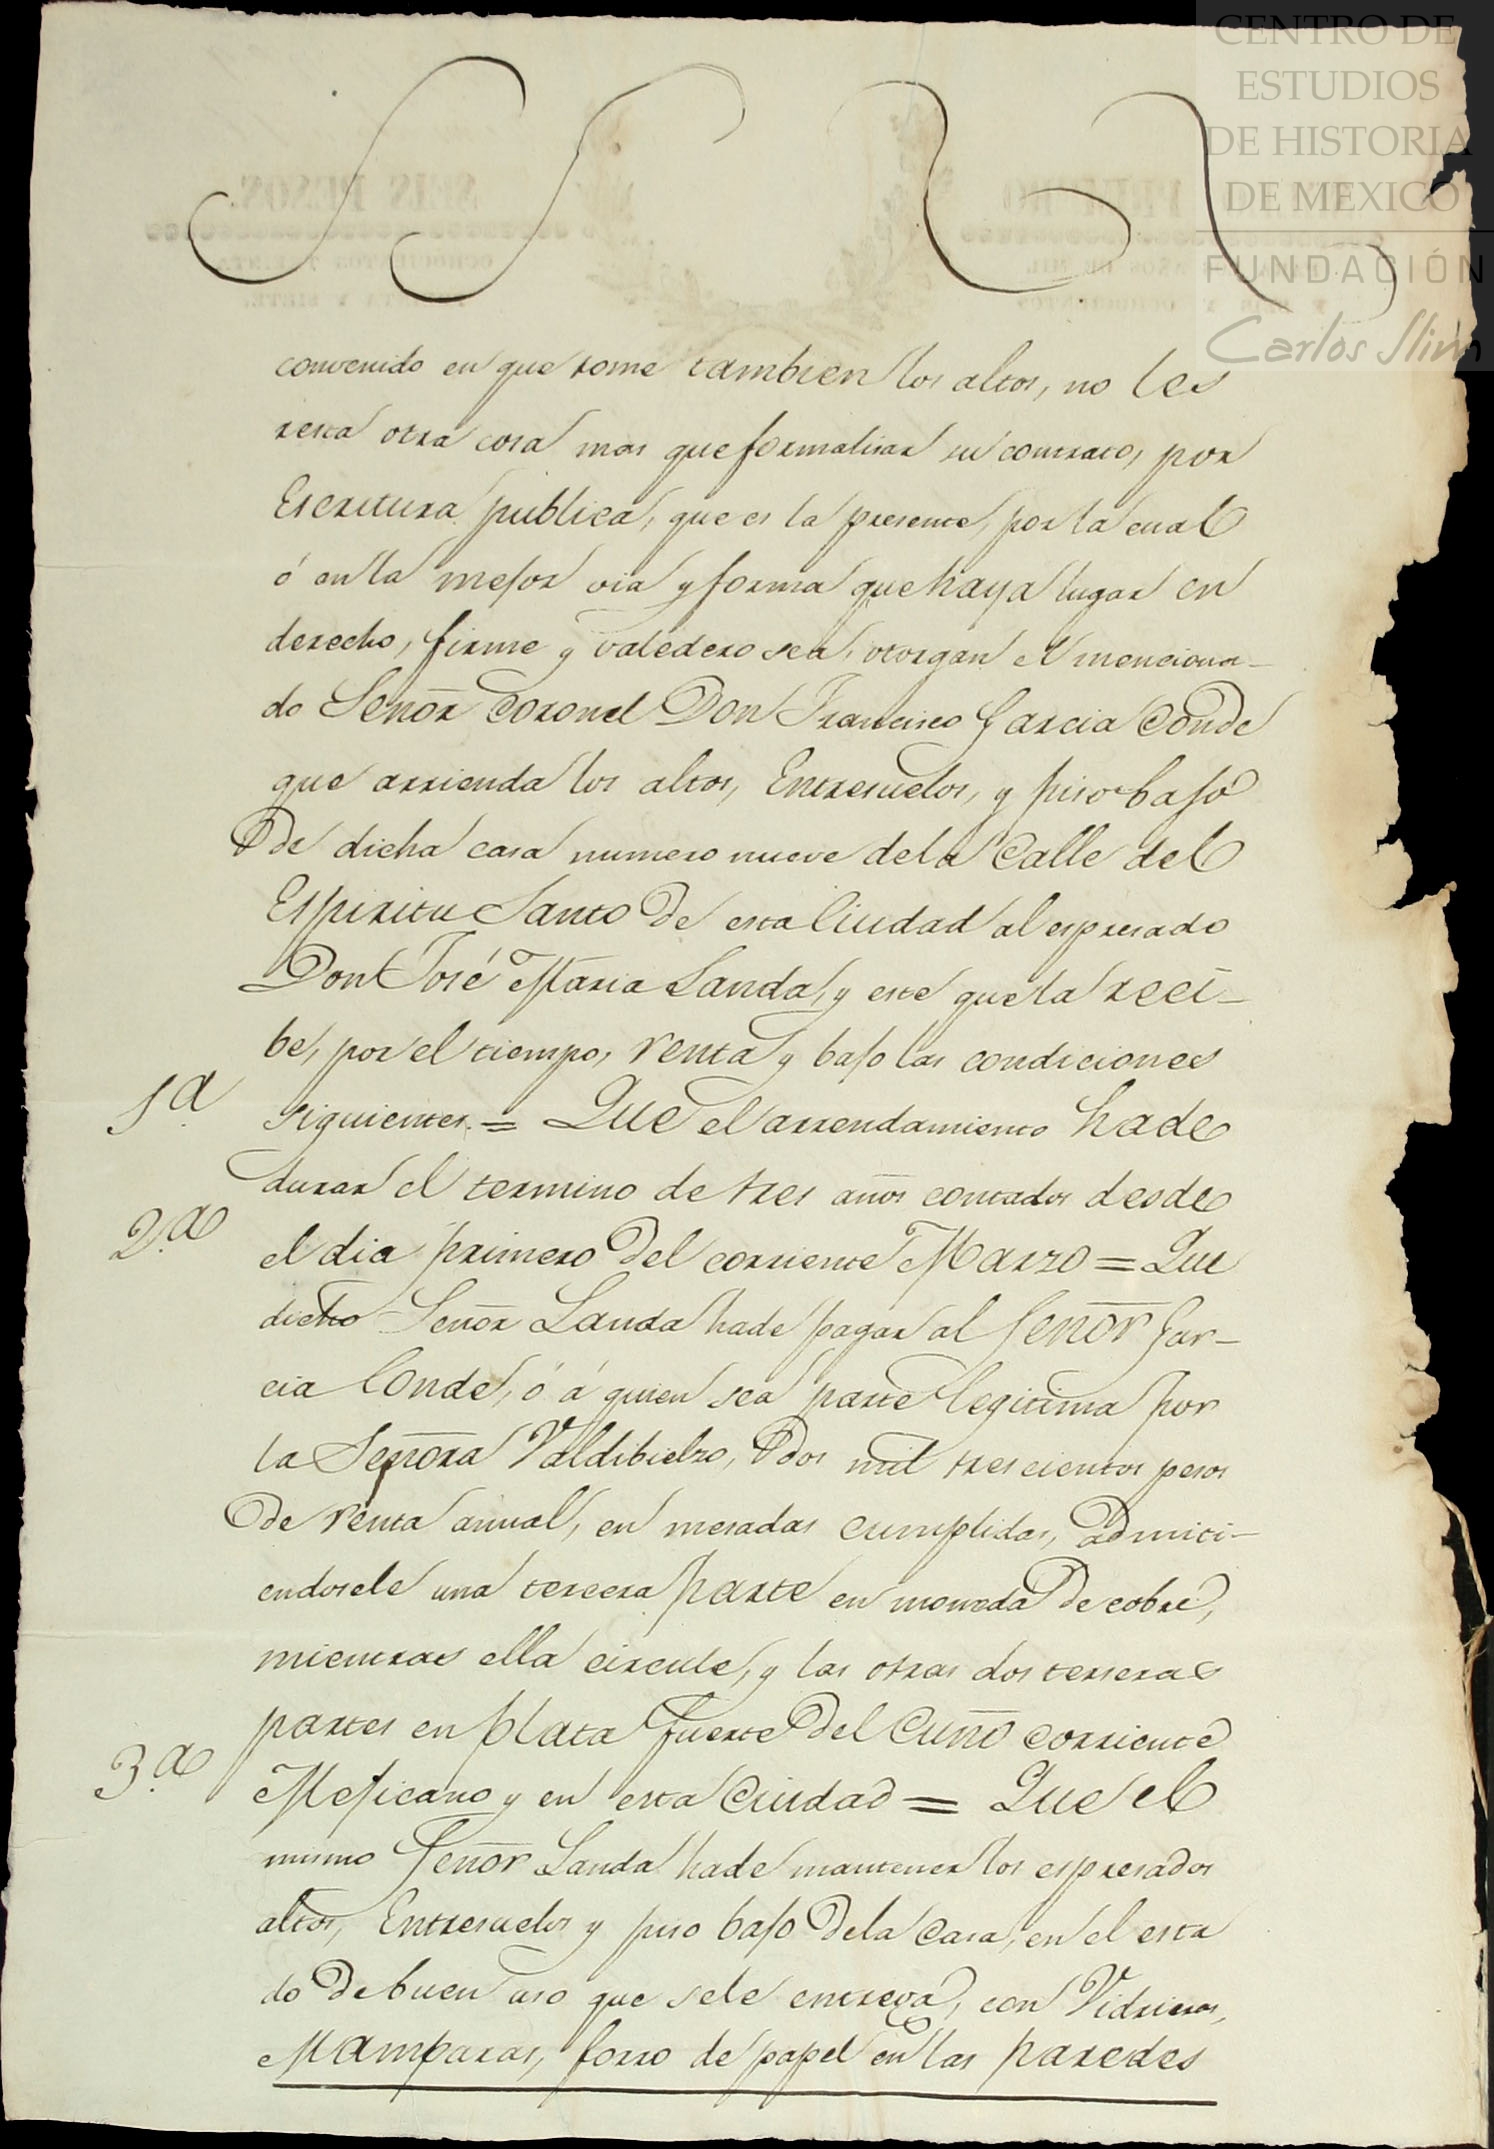 CENTRO DE
ESTUDIOS
DE HISTORIA
DE MEXICO
FUNDACIÓN
Carlos Slim
SEIS PESOS.
convenido en que tome tambien los altos, no les
resta otra cosa mas que formalisar su contrato, por
Escritura publica, que es la presente, por la cual
ó en la mejor via y forma que haya lugar en
derecho, firme y valedero sea, otorgan el menciona-
do Señor Coronel Don Francisco Garcia Conde
que arrienda los altos, Entresuelos, y piso bajo
de dicha casa numero nueve dela Calle del
Espiritu Santo de esta Ciudad al espresado
Don José Maria Landa, y este que la reci-
be, por el tiempo, renta y bajo las condiciones
1ª siguientes. = Que el arrendamiento hade
durar el termino de tres años contados desde
2.ª el dia primero del corriente Marzo = Que
dicho Señor Landa hade pagar al Señor Gar-
cia Conde, ó á quien sea parte legitima por
la Señora Valdibielzo, dos mil trescientos pesos
de renta anual, en mesadas cumplidas, admiti-
endosele una tercera parte en moneda de cobre,
mientras ella circule, y las otras dos terseras
partes en plata fuerte del Cuño corriente
3.ª Mejicano y en esta Ciudad = Que el
mismo Señor Landa hade mantener los espresados
altos, Entresuelos y piso bajo dela Casa, en el esta
do de buen uso que sele entrega, con Vidrieras,
Mamparas, forro de papel en las paredes